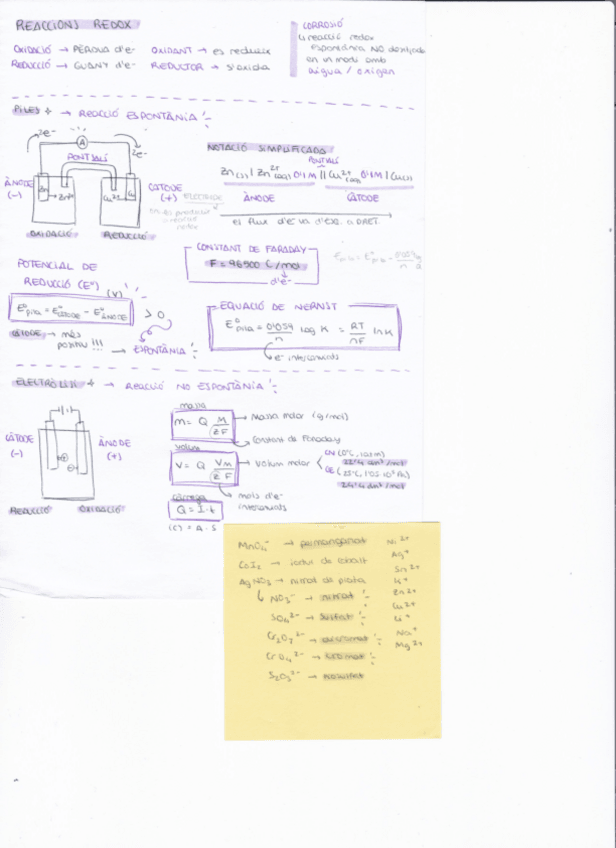 REACCIONS REDOX
OXIDACIÓ → PÈRDUA d'e-
REDUCCIÓ → GUANY d'e-
OXIDANT → es redueix
REDUCTOR → s'oxida
CORROSIÓ
reacció redox
espontània NO desitjada
en un medi amb
aigua / oxigen
PILES → REACCIÓ ESPONTÀNIA
2e- A 2e-
PONT SALÍ
ÀNODE (-)
Zn Zn2+ Cu2+ Cu
CÀTODE (+)
OXIDACIÓ REDUCCIÓ
NOTACIÓ SIMPLIFICADA
PONT SALÍ
Zn(s) | Zn2+(aq) 0'1M || Cu2+(aq) 0'1M | Cu(s)
ÀNODE CÀTODE
el flux d'e- va d'esq. a DRET.
CONSTANT DE FARADAY
F = 96500 C/mol
d'e-
POTENCIAL DE
REDUCCIÓ (E°)
(V)
E°pila = E°CÀTODE - E°ÀNODE > 0
CÀTODE → més
positiu !!! → ESPONTÀNIA
EQUACIÓ DE NERNST
E°pila = 0'059/n log K = RT/nF ln K
e- intercanviats
ELECTRÒLISI → REACCIÓ NO ESPONTÀNIA
CÀTODE (-)
ÀNODE (+)
REDUCCIÓ OXIDACIÓ
massa
m = Q M/zF
Massa molar (g/mol)
Constant de Faraday
volum
V = Q Vm/zF
Volum molar
CN (0°C, 1atm)
22'4 dm3/mol
(25°C, 1'05·10^5 Pa)
24'4 dm3/mol
mols d'e-
intercanviats
càrrega
Q = I·t
(C) = A·s
MnO4- → permanganat
CoI2 → iodur de cobalt
AgNO3 → nitrat de plata
NO3- → nitrat
SO4 2- → sulfat
Cr2O7 2- → dicromat
CrO4 2- → cromat
S2O3 2- → tiosulfat
Ni2+
Ag+
Sn2+
K+
Zn2+
Cu2+
Li+
Na+
Mg2+